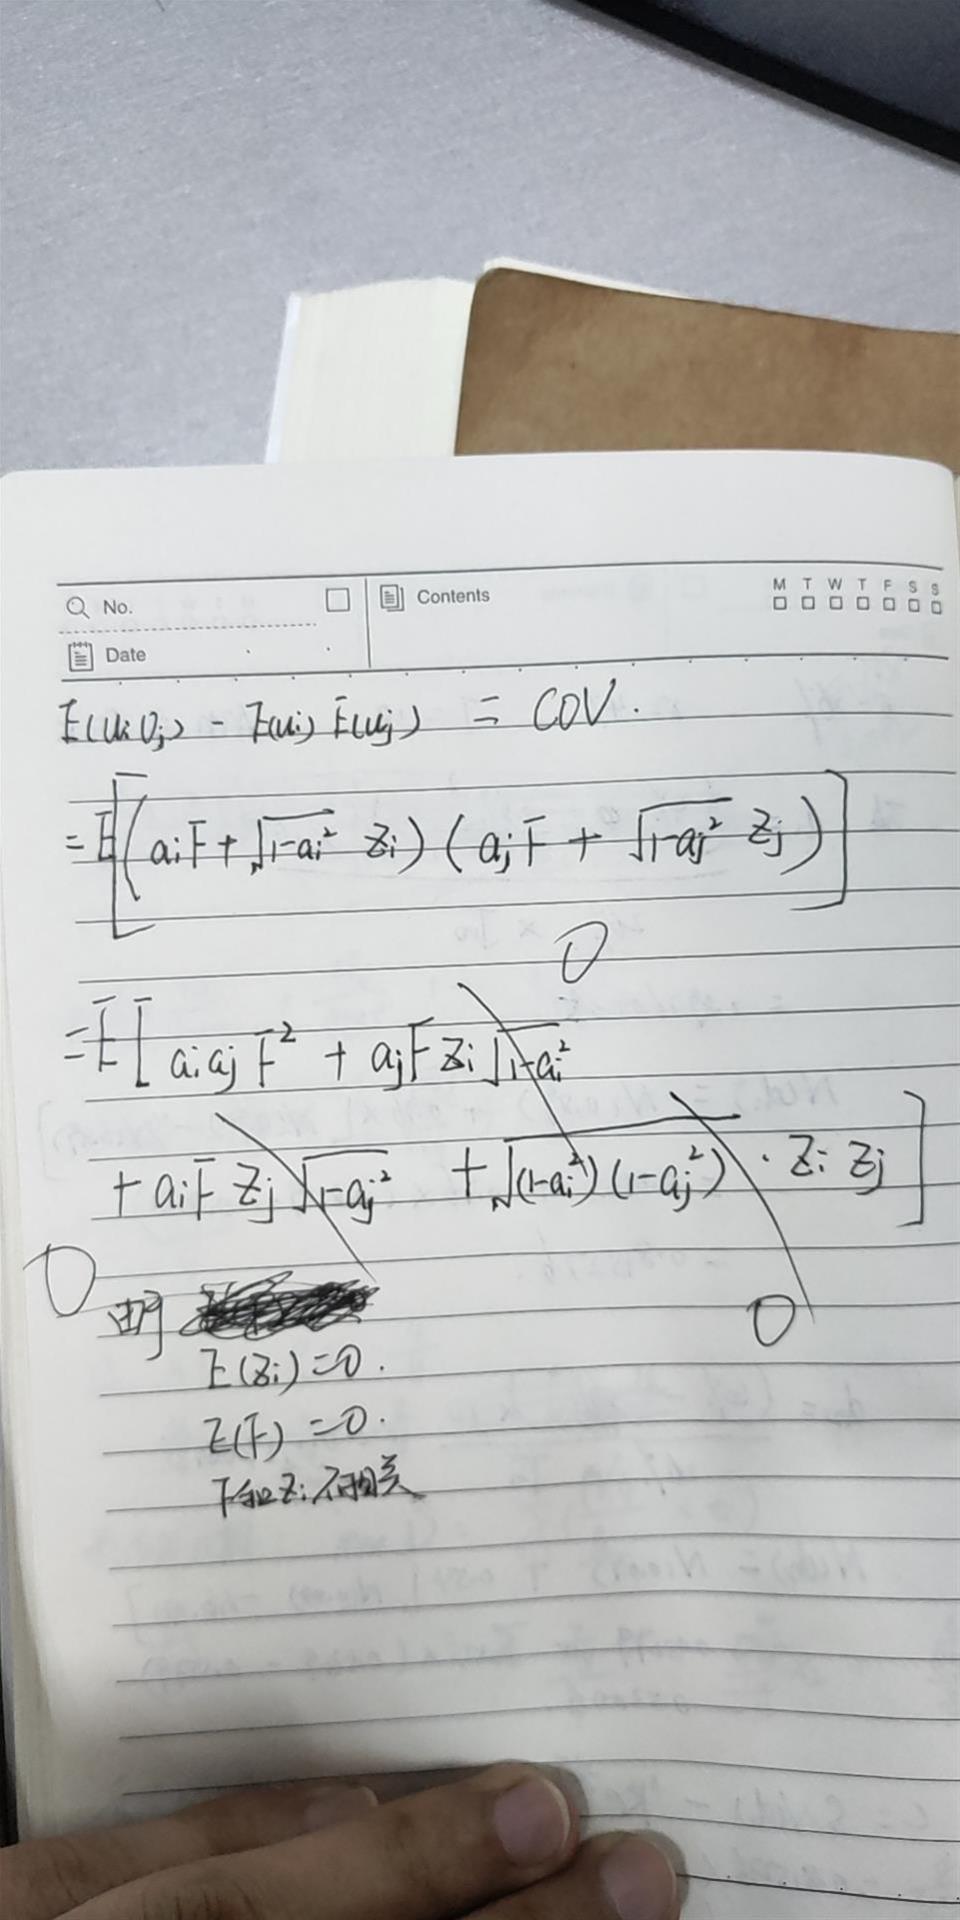 No.
Contents
M T W T F S S
Date
E(UiUj) - E(ui) E(uj) = COV.
= E[(aiF + √1-ai² Zi) (ajF + √1-aj² Zj)]
0
= E[aiajF² + ajF Zi √1-ai²
+ aiF Zj √1-aj² + √(1-ai²)(1-aj²) · Zi Zj]
0
0
E(Zi) = 0.
E(F) = 0.
F和Zi不相关